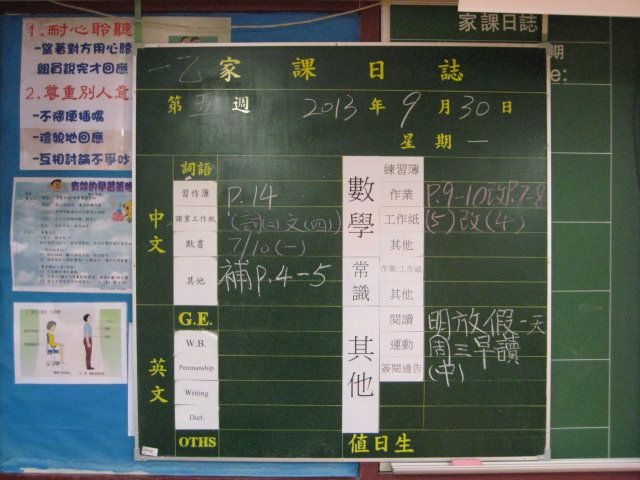 1.耐心聆聽
-望著對方用心聽
組員說完才回應
2.尊重別人意
-不隨便插嘴
-禮貌地回應
-互相討論不爭吵
有效的學習策略
一乙 家課日誌
第 五 週 2013 年 9 月 30 日
星期 一
中文
詞語
習作簿 P.14
課業工作紙 (詞二)文(四)
默書 7/10(一)
其他 補P.4-5
英文
G.E.
W.B.
Penmanship
Writing
Dict.
OTHS
數學
練習簿
作業 P.9-10改P.7-8
工作紙 (5)改(4)
其他
常識
作業/工作紙
其他
其他
閱讀 明放假一天
運動 周三早讀
簽閱通告 (中)
值日生
家課日誌
期
e: